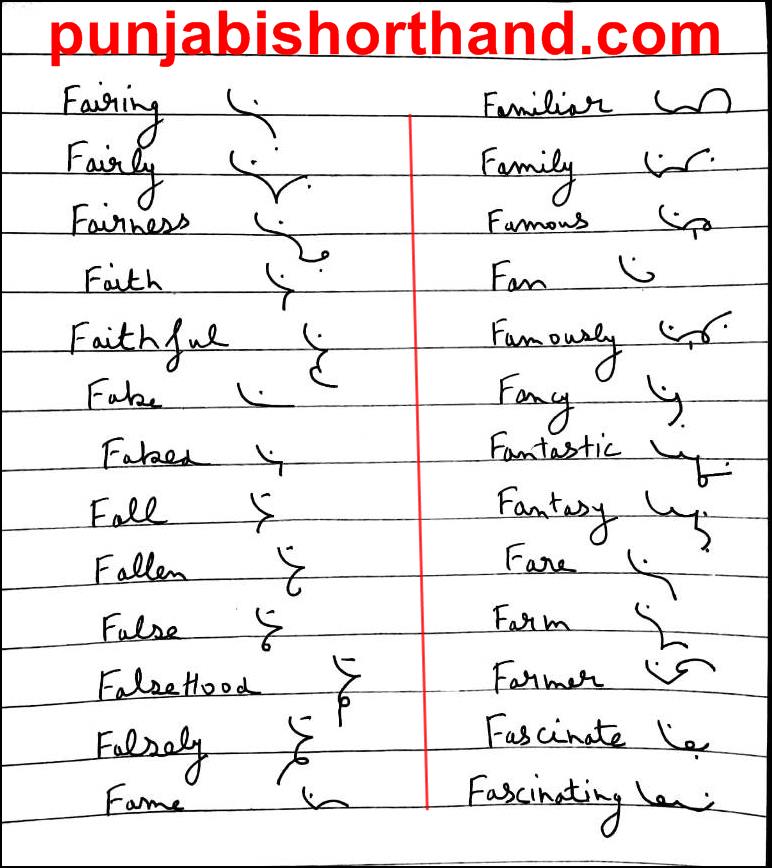 punjabishorthand.com
Fairing
Fairly
Fairness
Faith
Faithful
Fake
Faked
Fall
Fallen
False
FalseHood
Falsely
Fame
Familiar
Family
Famous
Fan
Famously
Fancy
Fantastic
Fantasy
Fare
Farm
Farmer
Fascinate
Fascinating